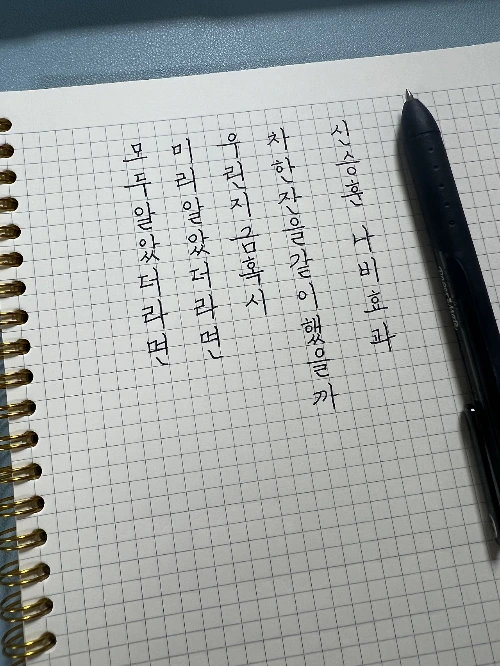 신승훈 나비효과
차 한잔을 같이 했을까
우린 지금 혹시
미리 알았더라면
모두 알았더라면